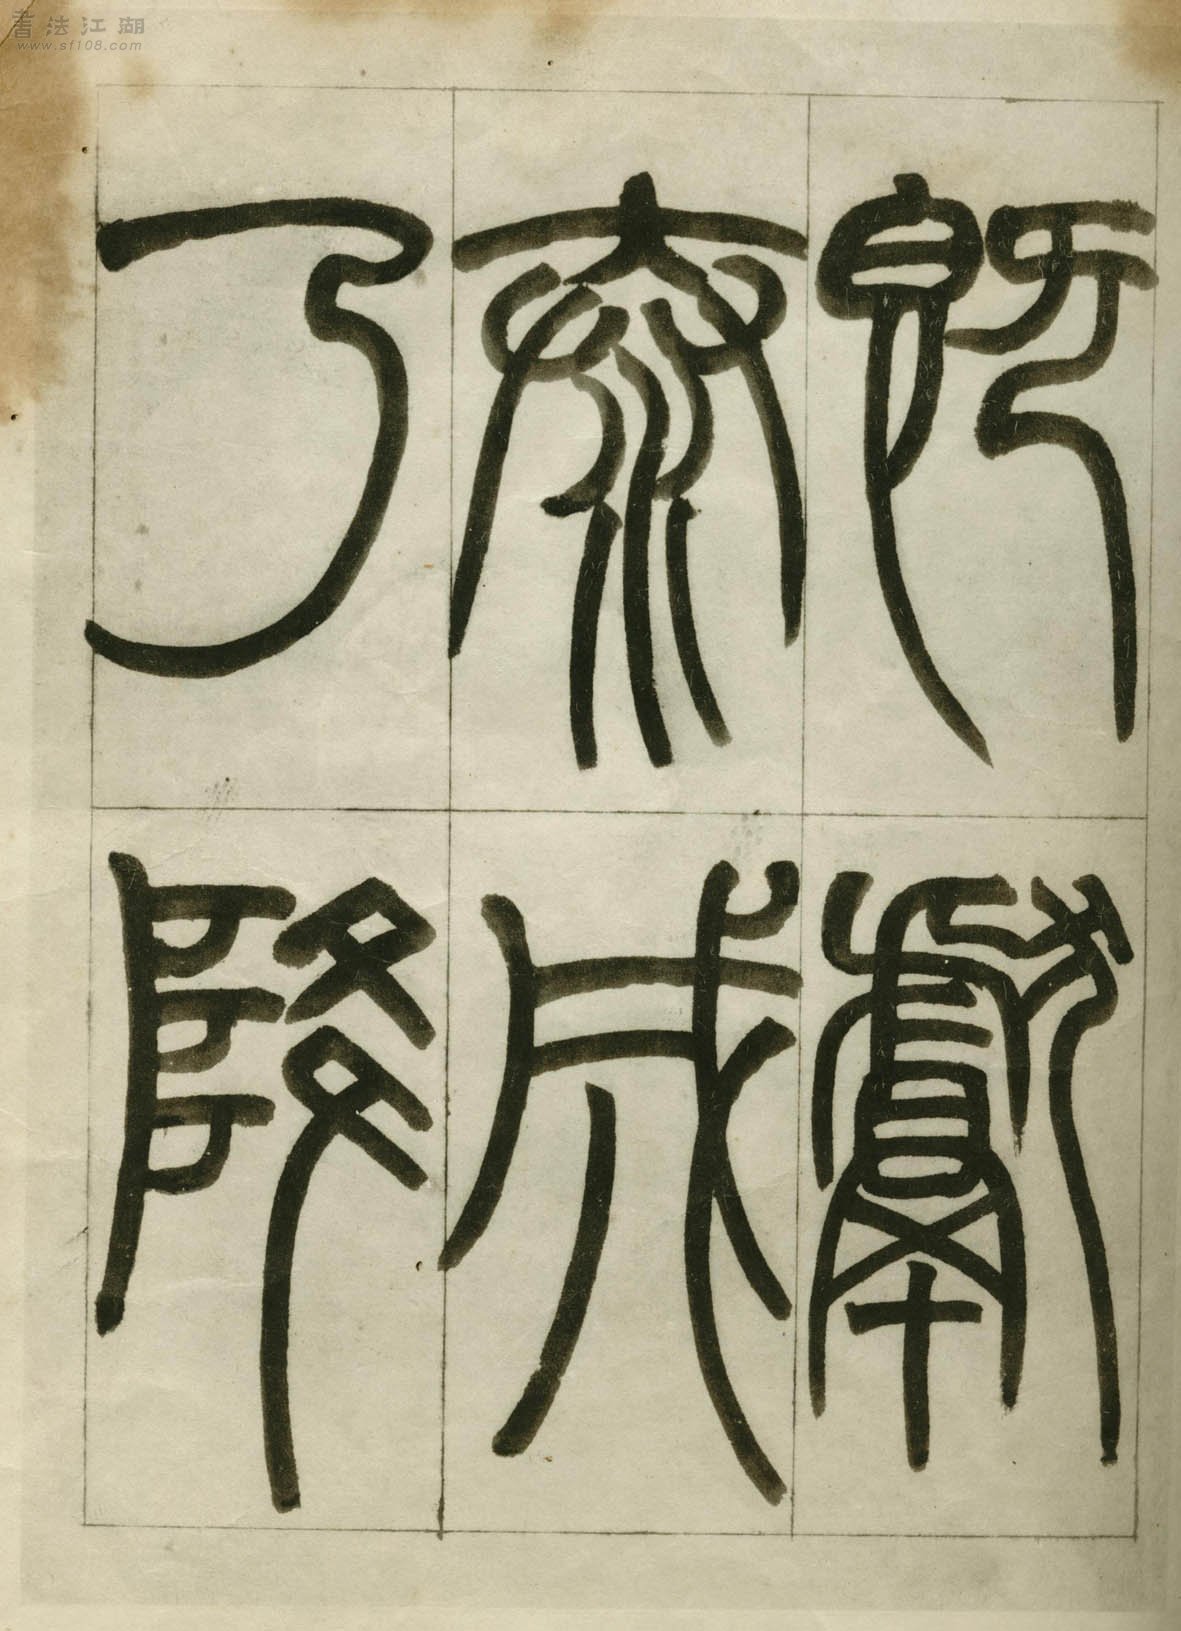 書法江湖
www.sf108.com
既獻
泰成
乃降